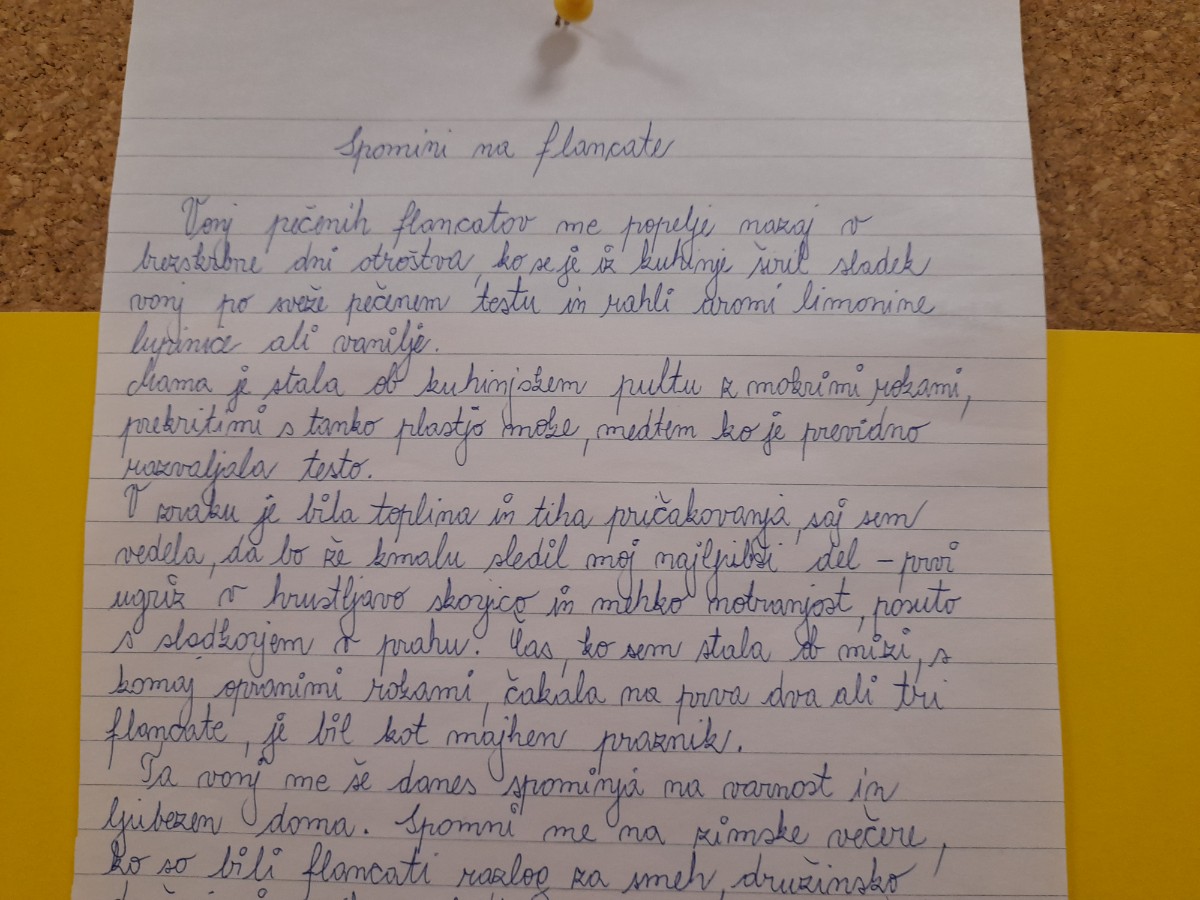 Spomini na flancate
Vonj pečenih flancatov me popelje nazaj v
brezskrbne dni otroštva, ko se je iz kuhinje širil sladek
vonj po sveže pečenem testu in rahli aromi limonine
lupinice ali vanilje.
Mama je stala ob kuhinjskem pultu z mokrimi rokami,
prekritimi s tanko plastjo moke, medtem ko je previdno
razvaljala testo.
V zraku je bila toplina in tiha pričakovanja, saj sem
vedela, da bo že kmalu sledil moj najljubši del – prvi
ugriz v hrustljavo skorjico in mehko notranjost, posuto
s sladkorjem v prahu. Čas, ko sem stala ob mizi, s
komaj opranimi rokami, čakala na prva dva ali tri
flancate, je bil kot majhen praznik.
Ta vonj me še danes spominja na varnost in
ljubezen doma. Spomni me na zimske večere,
ko so bili flancati razlog za smeh, družinsko